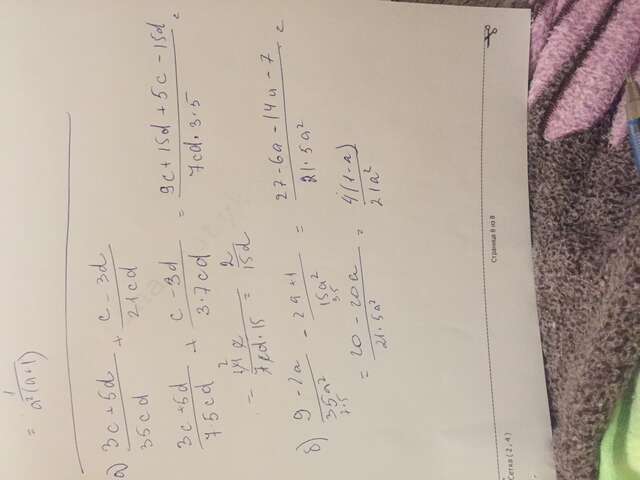 = 1/(a²(a+1))
а) (3c + 5d)/(35cd) + (c - 3d)/(21cd)
(3c + 5d)/(7·5cd) + (c - 3d)/(3·7cd) = (9c + 15d + 5c - 15d)/(7cd·3·5) =
= (14c)/(7cd·15) = 2/(15d)
б) (9 - 2a)/(35a²) - (2a + 1)/(15a²) = (27 - 6a - 14a - 7)/(21·5a²) =
7·5 3·5
= (20 - 20a)/(21·5a²) = (4(1-a))/(21a²)
Страница 8 из 8
Сетка ( 2 , 4 )